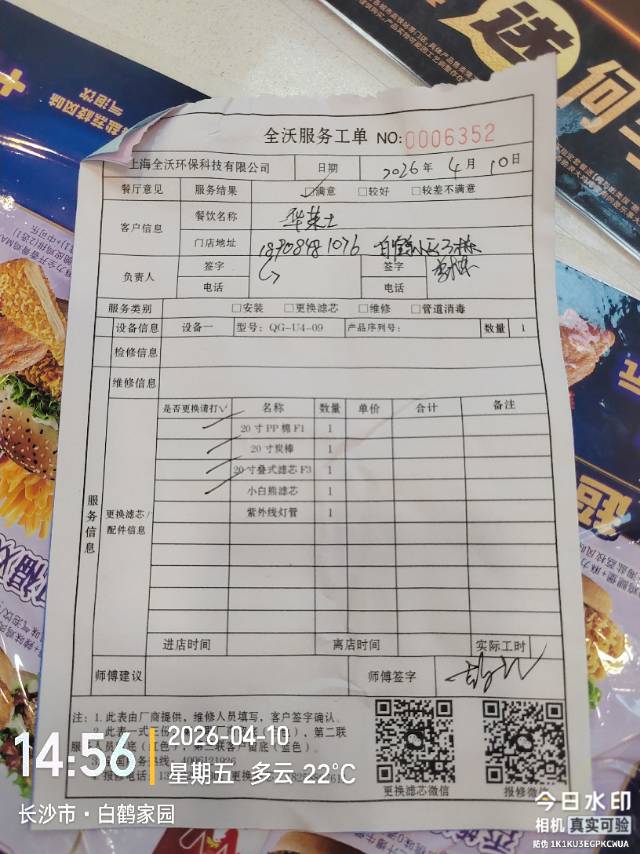 送
何
盐荔修风味
气泡饮
全沃服务工单 NO:0006352
上海全沃环保科技有限公司 日期 2026年 4月 10日
餐厅意见 服务结果 □满意 □较好 □较差不满意
客户信息 餐饮名称 华莱士
门店地址 白鹤
负责人 签字 签字
电话 电话
服务类别 □安装 □更换滤芯 □维修 □管道消毒
设备信息 设备一 型号: QG-U4-09 产品序列号: 数量 1
检修信息
维修信息
服务信息
更换滤芯/配件信息
是否更换请打√ 名称 数量 单价 合计 备注
✓ 20寸PP棉F1 1
✓ 20寸炭棒 1
✓ 20寸叠式滤芯F3 1
✓ 小白熊滤芯 1
紫外线灯管 1
进店时间 离店时间 实际工时
师傅建议 师傅签字
注: 1.此表由厂商提供, 维修人员填写, 客户签字确认。
更换滤芯微信 报修微信
14:56
2026-04-10
星期五 多云 22℃
长沙市·白鹤家园
今日水印
相机 真实可验
防伪 1K1KU3EGPKCWUA